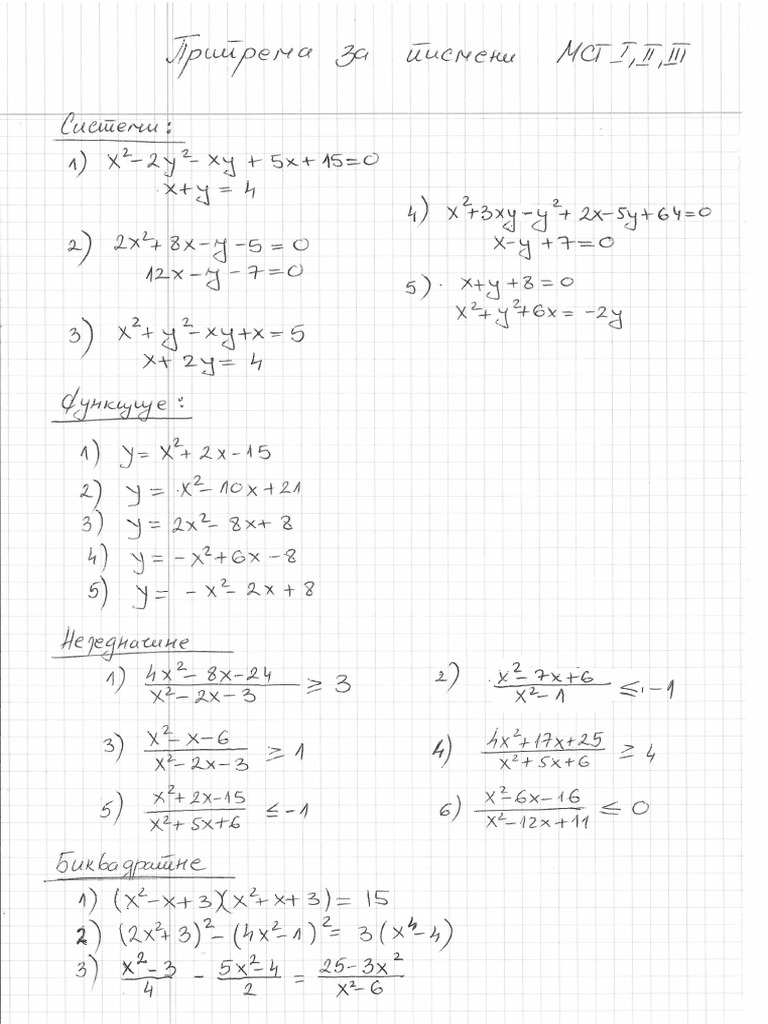 Припрема за писмени МСТ I, II, III
Системи:
1) x² - 2y² - xy + 5x + 15 = 0
x + y = 4
2) 2x² + 8x - y - 5 = 0
12x - y - 7 = 0
3) x² + y² - xy + x = 5
x + 2y = 4
4) x² + 3xy - y² + 2x - 5y + 64 = 0
x - y + 7 = 0
5) x + y + 8 = 0
x² + y² + 6x = -2y
Функције:
1) y = x² + 2x - 15
2) y = x² - 10x + 21
3) y = 2x² - 8x + 8
4) y = -x² + 6x - 8
5) y = -x² - 2x + 8
Неједначине
1) (4x² - 8x - 24)/(x² - 2x - 3) ≥ 3
2) (x² - 7x + 6)/(x² - 1) ≤ -1
3) (x² - x - 6)/(x² - 2x - 3) ≥ 1
4) (4x² + 17x + 25)/(x² + 5x + 6) ≥ 4
5) (x² + 2x - 15)/(x² + 5x + 6) ≤ -1
6) (x² - 6x - 16)/(x² - 12x + 11) ≤ 0
Биквадратне
1) (x² - x + 3)(x² + x + 3) = 15
2) (2x² + 3)² - (4x² - 1)² = 3(x⁴ - 4)
3) (x² - 3)/4 - (5x² - 4)/2 = (25 - 3x²)/(x² - 6)